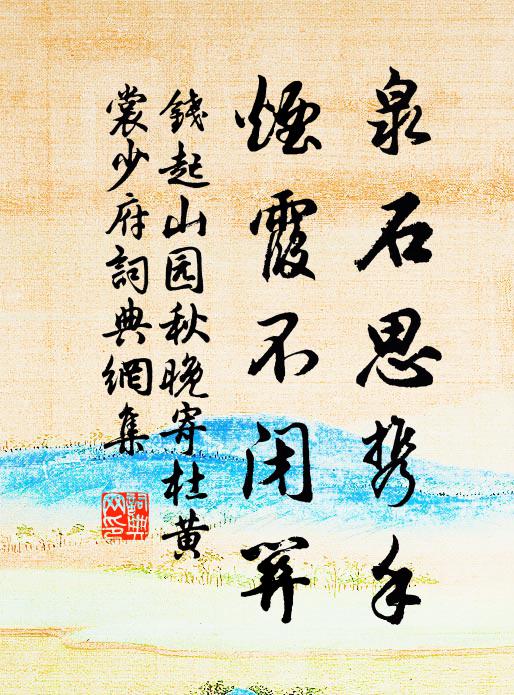 泉石思携手
煙霞不闭關
錢起山园秋晚寄杜黄
裳少府詞典網集
詞典
网印